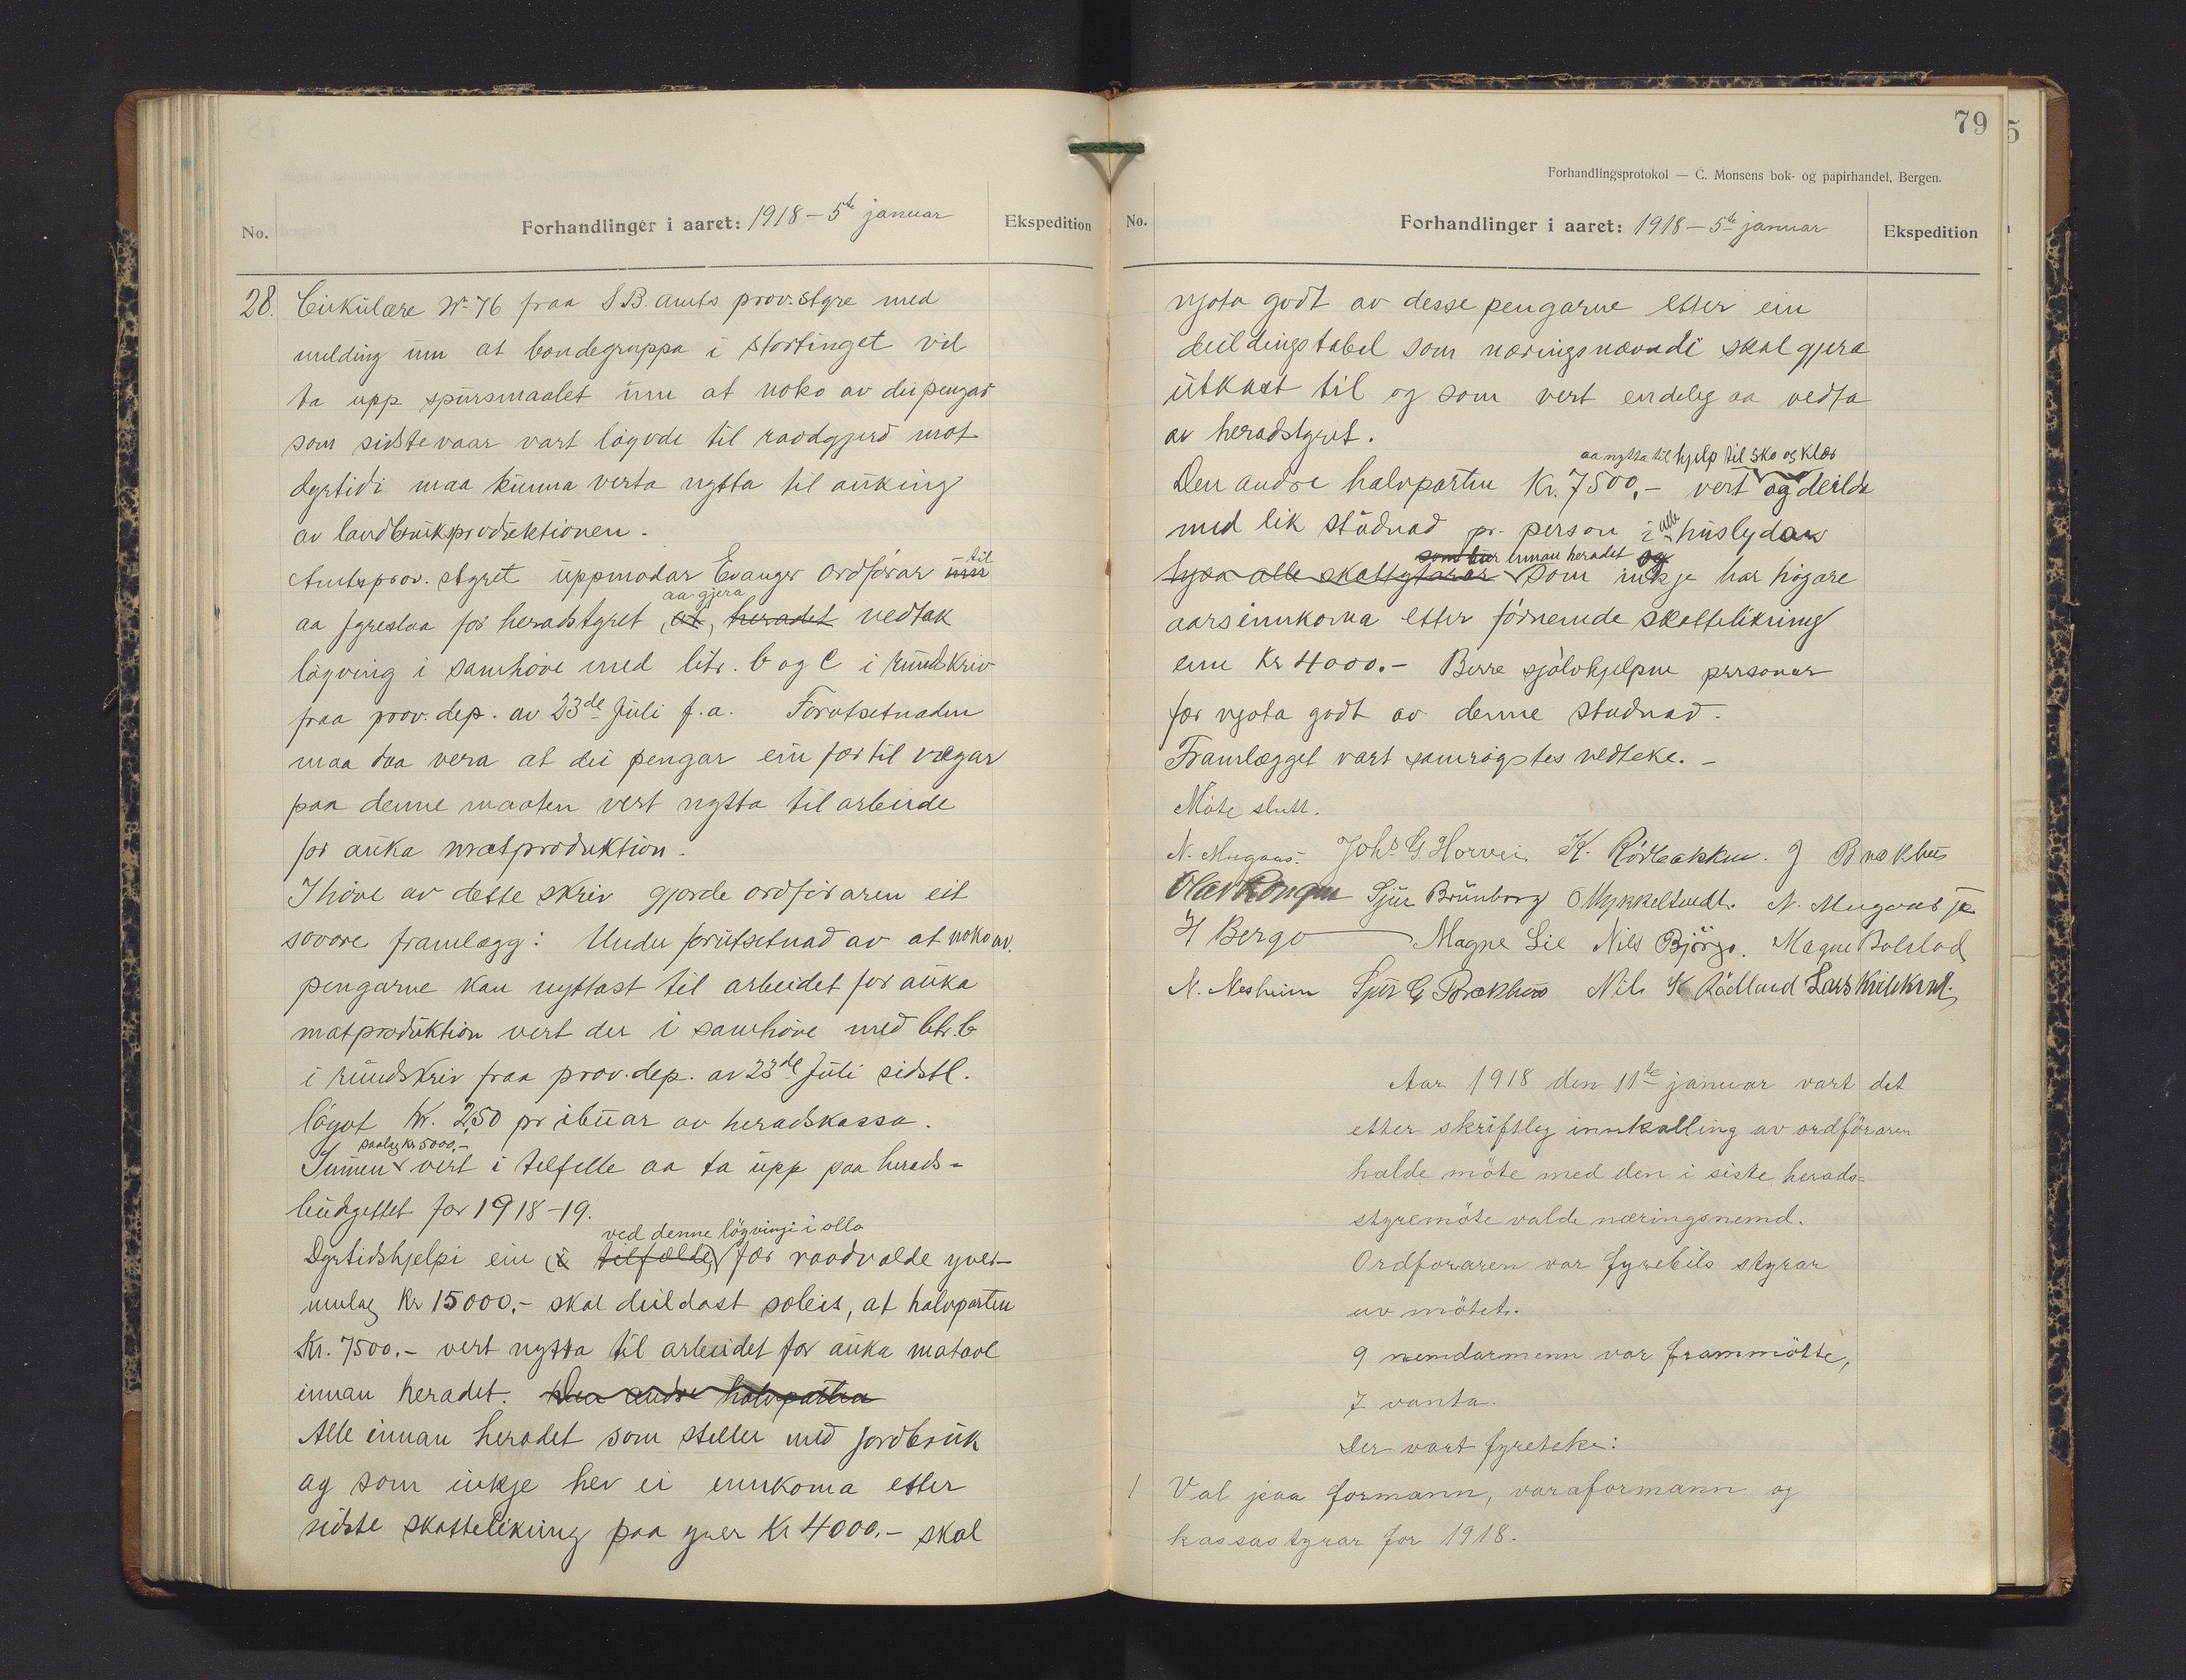 No. Forhandlinger i aaret: 1918 – 5te januar Ekspedition
28. Cirkulære No 76 fraa S.B. amts prov. styre med
melding um at bondegruppa i stortinget vil
ta upp spursmaalet um at noko av dei pengar
som sidste vaar vart løgvde til raadgjerd mot
dyrtidi maa kunna verta nytta til auking
av landbruksproduktionen.
til
Amtsprov. styret uppmodar Evanger ordførar um
aa gjera
aa fyreslaa for heradstyret, at, heradet vedtak
løgving i samhøve med litr. b og c i rundskriv
fraa prov. dep. av 23de Juli f.a. Forutsetnaden
maa daa vera at dei pengar ein fær til vegar
paa denne maaten vert nytta til arbeide
for auka matproduktion.
I høve av dette skriv gjorde ordføraren eit
sovore framlegg: Under forutsetnad av at noko av
pengarne kan nyttast til arbeidet for auka
matproduktion vert der i samhøve med litr. b
i rundskriv fraa prov. dep. av 23de Juli sidstl.
løgvt Kr. 2,50 pr ibuar av heradskassa.
paaleg kr 5000,-
Sumen vert i tilfelle aa ta upp paa herads-
budgettet for 1918-19.
ved denne løgvingi i alla
Dyrtidshjelpi ein (i tilfælde) fær raadvalde yver
umlag Kr 15000.- skal deildast soleis, at halvparten
Kr. 7500.- vert nytta til arbeidet for auka matavl
innan heradet. Den andre halvparten
Alle innan heradet som steller med jordbruk
og som inkje hev ei innkoma etter
sidste skattelikning paa yver Kr 4000.- skal
79
Forhandlingsprotokol — C. Monsens bok- og papirhandel, Bergen.
No. Forhandlinger i aaret: 1918 – 5te januar Ekspedition
njota godt av desse pengarne etter ein
deildingstabel som næringsnævndi skal gjera
utkast til og som vert endeleg aa vedta
av heradstyret.
aa nytta til hjelp til sko og klær
Den andre halvparten Kr. 7500,- vert og deilda
alle
med lik studnad pr. person i huslydar
som bur innan heradet og
alle skattytarar som inkje har høgare
aarsinnkoma etter fornemde skattelikning
enn Kr 4000.- Berre sjølvhjelpne personar
fær njota godt av denne studnad.
Framlegget vart samrøystes vedteke. -
Møte slutt.
N. Mugaas. Johs G. Horvei K. Rødbakken. J Brækhus
Olav Rongen Sjur Brunborg O Mykkeltvedt. N. Mugaas jr
H Bergo Magne Lie Nils Bjørgo. Magne Bolstad
N. Nesheim Sjur G Brækhus Nils K Rødland Lars Kvilekval.
Aar 1918 den 11te januar vart det
etter skriftleg innkalling av ordføraren
halde møte med den i siste herads-
styremøte valde næringsnemd.
Ordføraren var fyrebils styrar
av møtet.
9 nemdarmenn var frammøtte,
7 vanta.
Der vart fyreteke:
1 Val paa formann, varaformann og
kassastyrar for 1918.